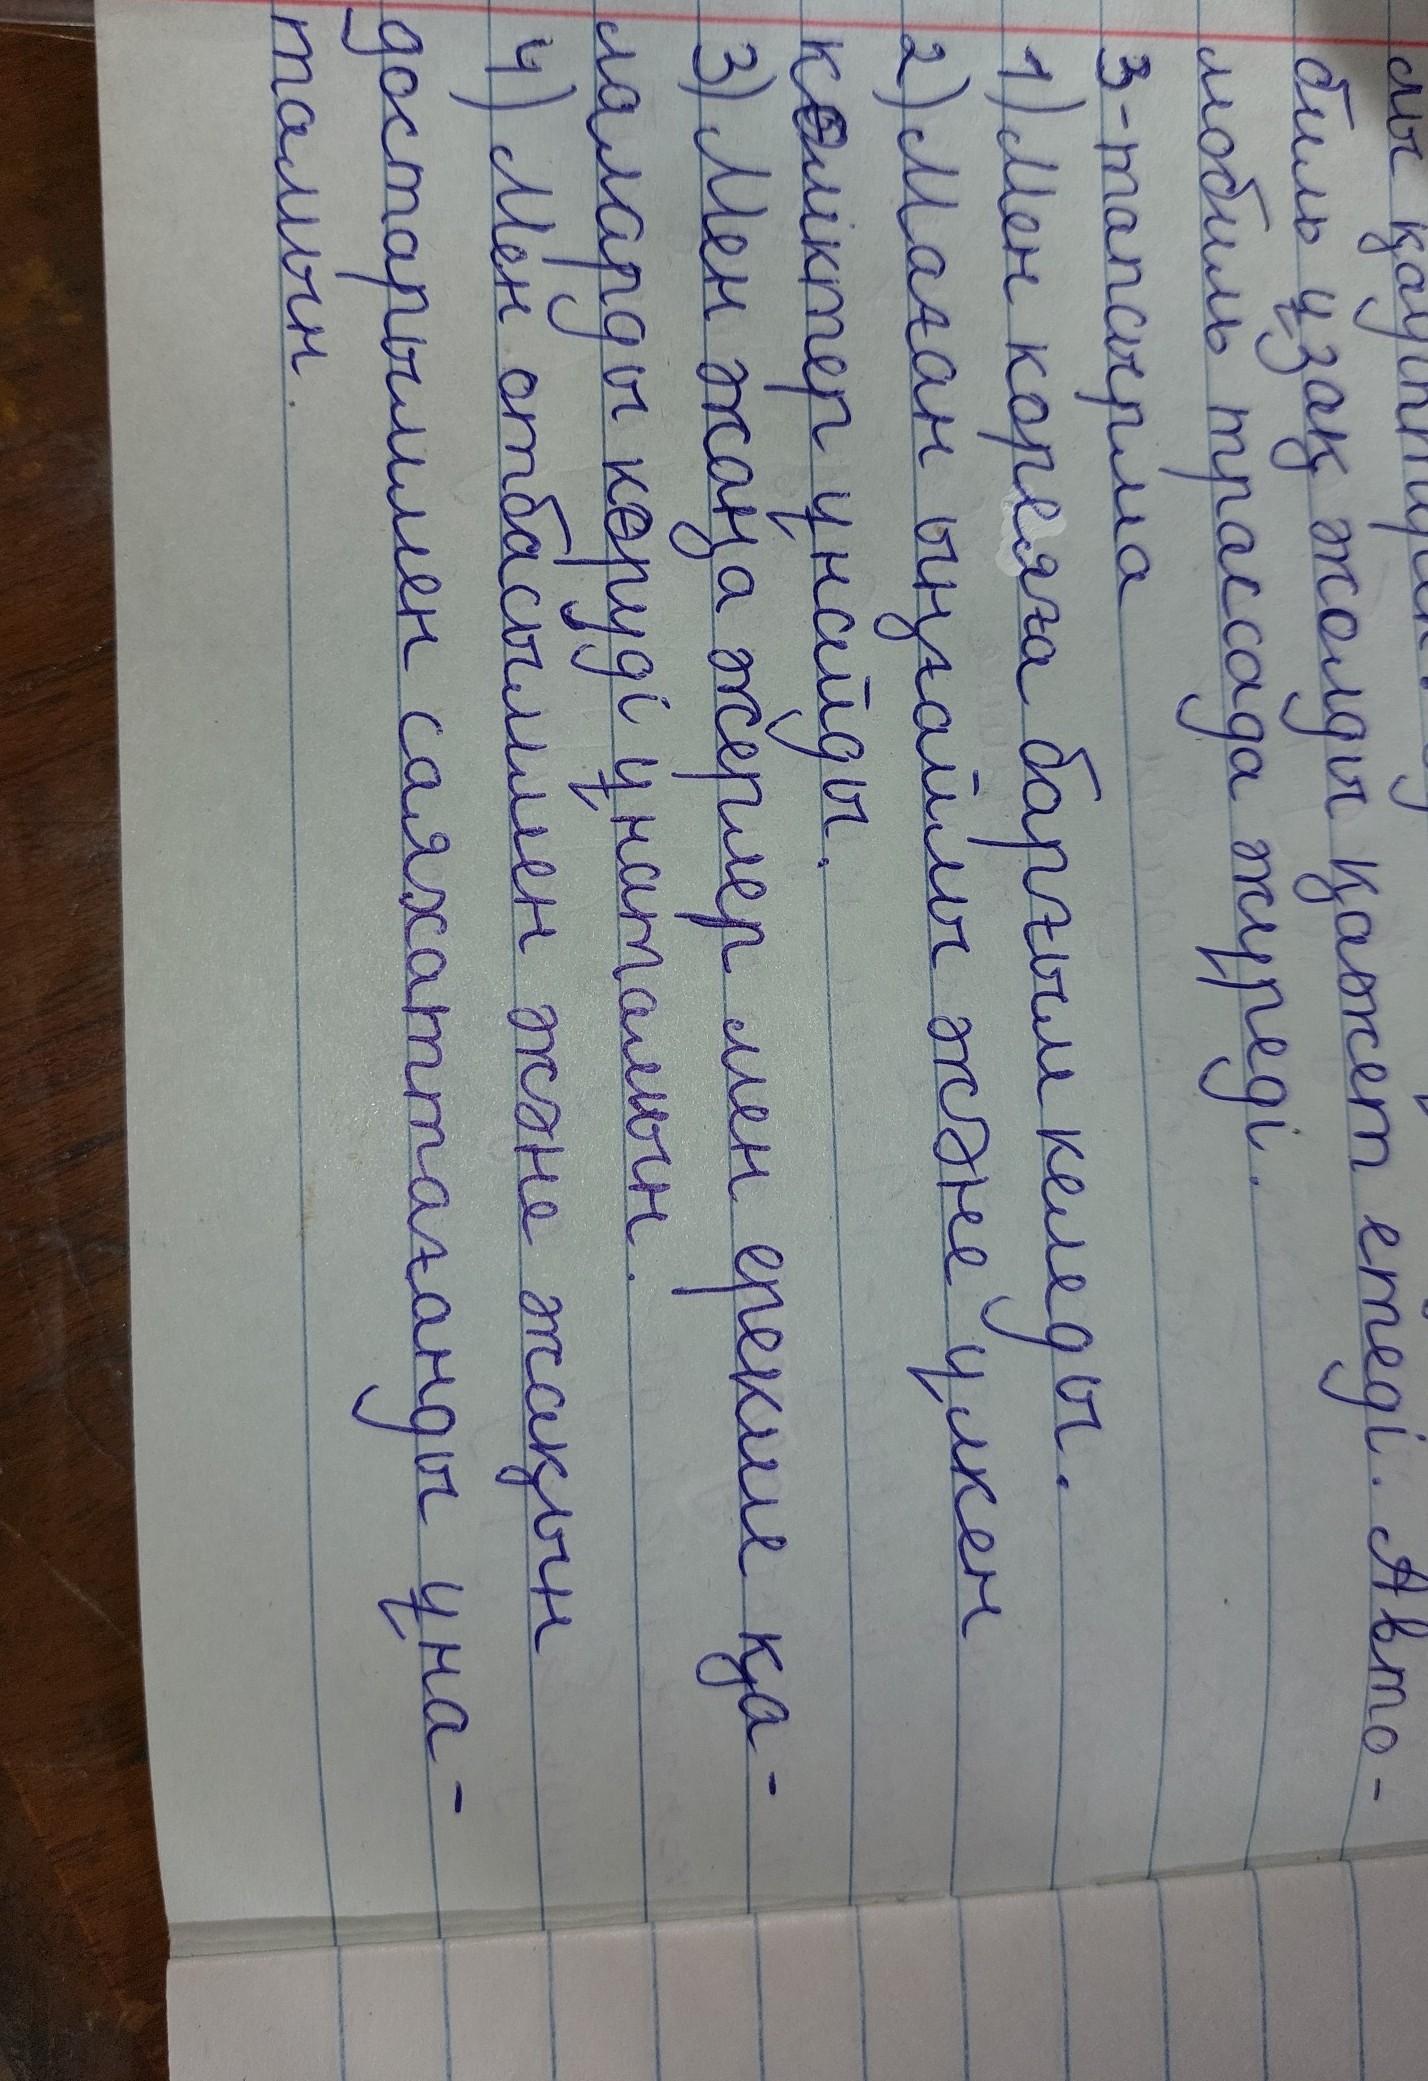 лы қауіптіл
биль ұзақ жолды қажет етеді. Авто-
мобиль трассада жүреді.
3-тапсырма
1) Мен кореяға барғым келеды.
2) Маған ыңғайлы және үлкен
көліктер ұнайды.
3) Мен жаңа жерлер мен ерекше қа-
лаларды көруді ұнатамын.
4) Мен отбасыммен және жақын
достарыммен саяхаттағанды ұна-
тамын.